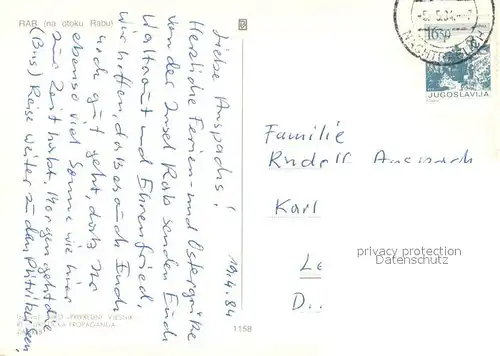 RAB (na otoku Rabu)
Liebe Anspachs!
19.4.84
Herzliche Ferien- und Ostergrüße
von der Insel Rab senden Euch
Waltraut und Ehrenfried.
Wir hoffen, daß es auch Euch
recht gut geht, daß Ihr
ebenso viel Sonne wie hier
zur Zeit habt. Morgen geht die
(Bus) Reise weiter zu den
VJESNIK
PROPAGANDA
1158
16.50
JUGOSLAVIJA
Familie
Rudolf Anspach
Karl
Le
D.
privacy protection
Datenschutz